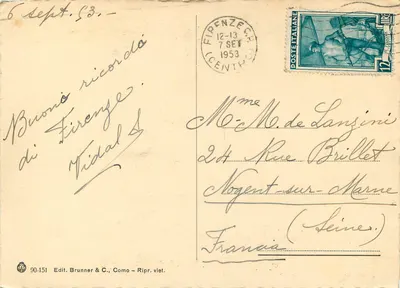 6 sept. 53.-
Buono ricordo
di Firenze.
Vidal
FIRENZE C.P.
12-13
7 SET
1953
(CENTRO)
POSTE ITALIANE
12
Mme M. de Lanzini
24 Rue Brillet
Nogent-sur-Marne
(Seine)
Francia
90-151 Edit. Brunner & C., Como - Ripr. viet.